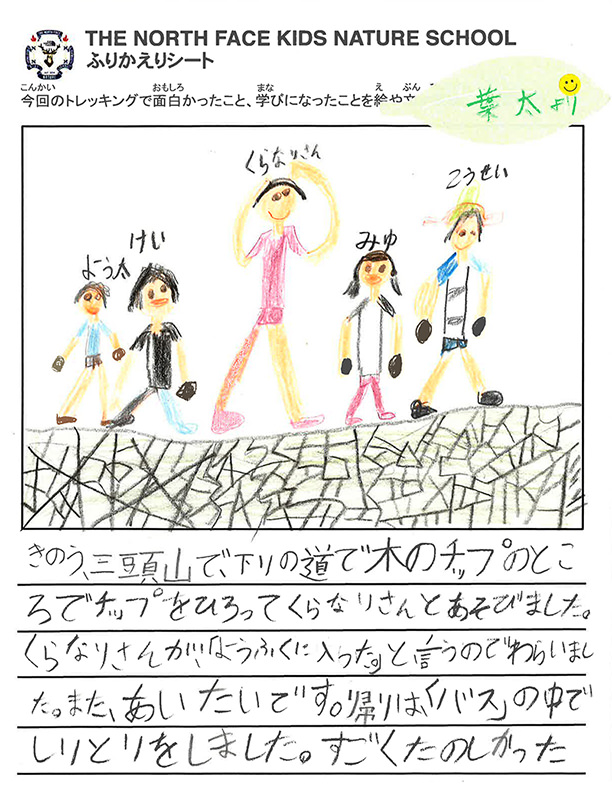 THE NORTH FACE KIDS NATURE SCHOOL
ふりかえりシート
今回のトレッキングで面白かったこと、学びになったことを絵や文
葉太より
くらなりさん
こうせい
けい
みゆ
よう太
きのう、三頭山で、下りの道で木のチップのとこ
ろでチップをひろってくらなりさんとあそびました。
くらなりさんが、「ようふくに入った。」と言うのでわらいまし
た。また、あいたいです。帰りは、「バス」の中で
しりとりをしました。すごくたのしかった